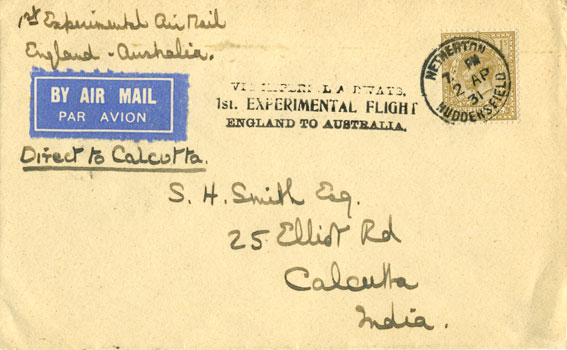 1st Experimental Air Mail
England - Australia.
BY AIR MAIL
PAR AVION
VIA IMPERIAL AIRWAYS.
1st. EXPERIMENTAL FLIGHT
ENGLAND TO AUSTRALIA.
NETHERTON
PM
AP
31
HUDDERSFIELD
Direct to Calcutta.
S. H. Smith Esq.
25 Elliot Rd
Calcutta
India.